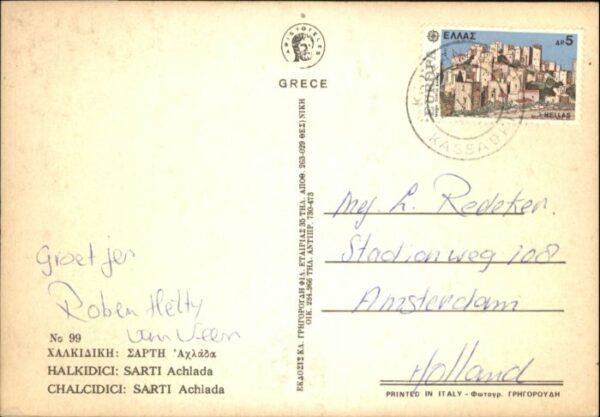 ARISTOTELES
GRECE
ΕΛΛΑΣ ΔΡ 5
EUROPA
HELLAS
KASSA
Groetjes
Rob en Hetty
van Veen
No 99
ΧΑΛΚΙΔΙΚΗ: ΣΑΡΤΗ Ἀχλάδα
HALKIDICI: SARTI Achlada
CHALCIDICI: SARTI Achlada
ΕΚΔΟΣΙΣ ΚΛ. ΓΡΗΓΟΡΟΥΔΗ ΦΙΛ. ΕΤΑΙΡΙΑΣ 35 ΤΗΛ. ΑΠΟΘ. 263-029 ΘΕΣ)ΝΙΚΗ
ΟΙΚ. 234-966 ΤΗΛ. ΑΝΤΙΠΡ. 730-473
Mej L. Redeker.
Stadionweg 108
Amsterdam
Holland
PRINTED IN ITALY - Φωτογρ. ΓΡΗΓΟΡΟΥΔΗ